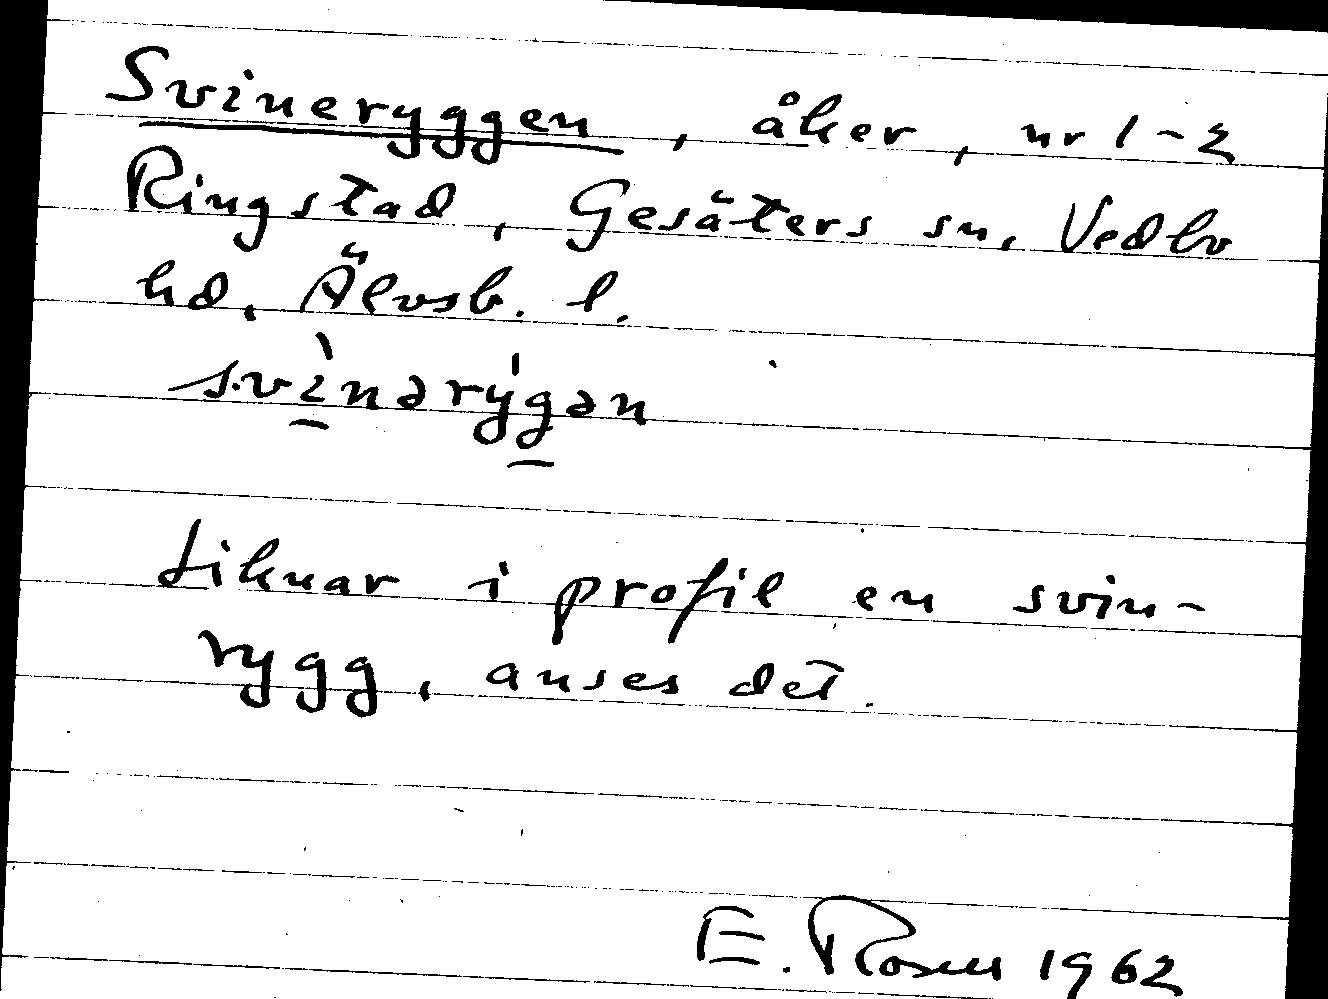 Svineryggen, åker, nr 1-2
Ringstad, Gesäters sn, Vedbo
hd, Älvsb. l.
svì̱nərý̍g̱ən
Liknar i profil en svin-
rygg, anses det.
E. Rosell 1962